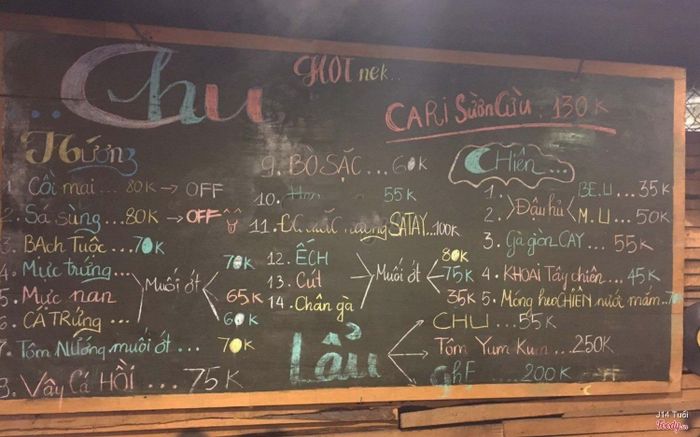 Chu
HOT nek...
CARi Sườn Cừu. 130K
Nướng
1. Cồi mai... 80K → OFF
2. Sá sùng... 80K → OFF
3. BAch Tuộc... 70K
4. Mực trứng...
5. Mực nan
6. CÁ TRỨNG...
Muối ớt
70K
65K
60K
7. Tôm Nướng muối ớt... 70K
8. Vây Cá HỒi... 75K
9. BÒ SẶC... 60K
10. 55K
11. SATAY...100K
12. ẾCH
13. Cút
14. Chân gà
Muối ớt
80K
75K
35K
Chiên
1. BE.LI... 35K
2. Đâu hũ M.LI... 50K
3. Gà giòn CAY... 55K
4. KHOAI Tây chiên... 45K
5. Móng heo CHIÊN nước mắm...
Lẩu
CHU... 55K
Tôm Yum Kum...250K
GhẸ... 200K OFF
J14 Tuổi
Foody.vn